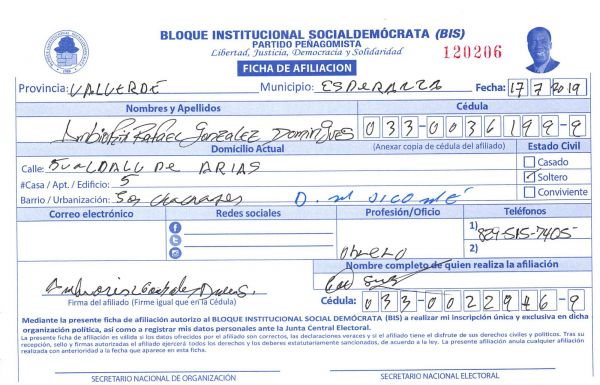 BLOQUE INSTITUCIONAL SOCIALDEMÓCRATA (BIS)
PARTIDO PEÑAGOMISTA
Libertad, Justicia, Democracia y Solidaridad
120206
FICHA DE AFILIACION
Provincia: VALVERDE Municipio: ESPERANZA Fecha: 17 7 2019
Nombres y Apellidos Cédula
Rafael Gonzalez Domingues 033-0036199-9
Domicilio Actual (Anexar copia de cédula del afiliado) Estado Civil
Calle: DE ARIAS Casado
#Casa / Apt. / Edificio: 5 ✓ Soltero
Barrio / Urbanización: Los Conviviente
Correo electrónico Redes sociales Profesión/Oficio Teléfonos
1) 829-515-7405
Obrero 2)
Nombre completo de quien realiza la afiliación
Firma del afiliado (Firme igual que en la Cédula) Cédula: 033-0022946-9
Mediante la presente ficha de afiliación autorizo al BLOQUE INSTITUCIONAL SOCIAL DEMÓCRATA (BIS) a realizar mi inscripción única y exclusiva en dicha
organización política, así como a registrar mis datos personales ante la Junta Central Electoral.
La presente ficha de afiliación es válida si los datos ofrecidos por el afiliado son correctos, las declaraciones veraces y si el afiliado tiene el disfrute de sus derechos civiles y políticos. Tras su
recepción, sello y firmas autorizadas el afiliado ejercerá todos los derechos y los deberes estatutariamente sancionados, de acuerdo a la ley. La presente afiliación anula cualquier afiliación
realizada con anterioridad a la fecha que aparece en esta ficha.
SECRETARIO NACIONAL DE ORGANIZACIÓN SECRETARIO NACIONAL ELECTORAL